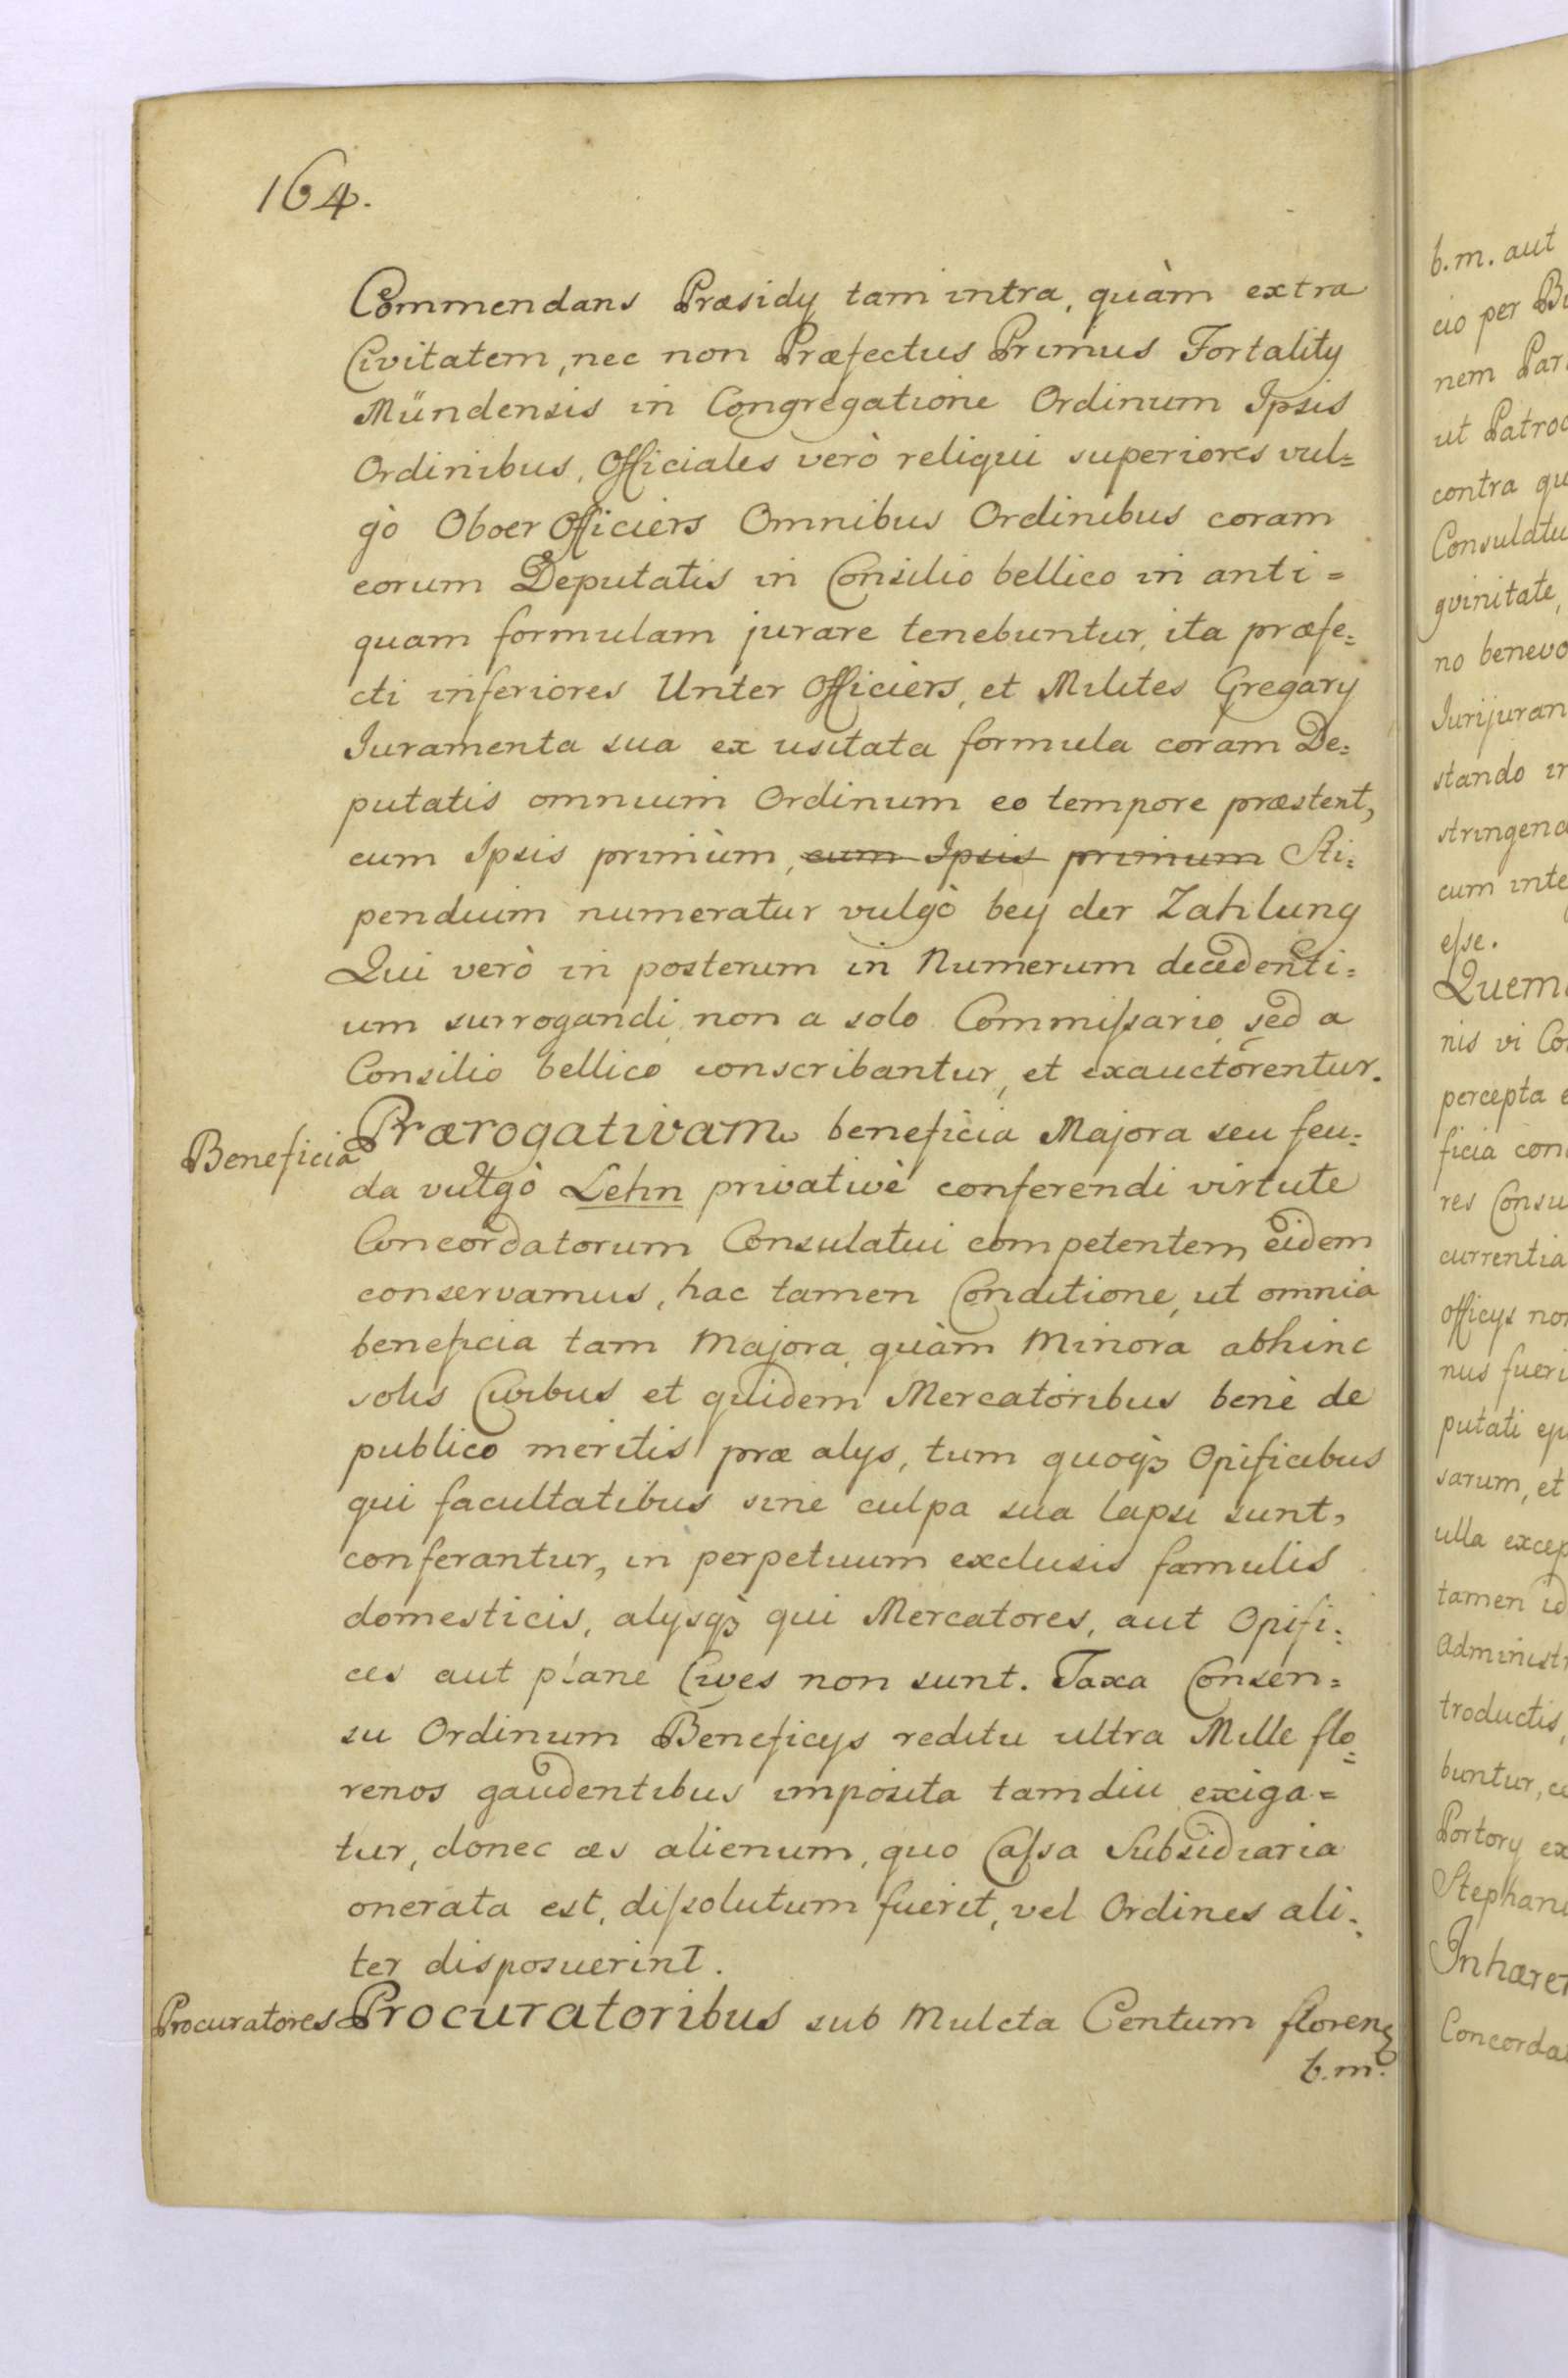 164.
Commendans Præsidy tam intra, quàm extra
Civitatem, nec non Præfectus Primus Fortality
Mündensis in Congregatione Ordinum Ipsis
Ordinibus, Officiales verò reliqui superiores vul=
gò Oboer Officiers Omnibus Ordinibus coram
eorum Deputatis in Consilio bellico in anti=
quam formulam jurare tenebuntur, ita præfe=
cti inferiores Unter Officiers, et Milites Gregary
Juramenta sua ex usitata formula coram De=
putatis omnium Ordinum eo tempore præstent,
cum Ipsis primùm, cum Ipsis primum Sti=
pendium numeratur vulgò bey der Zahlung
Qui verò in posterum in Numerum decedenti=
um surrogandi, non a solo Commissario, sed a
Consilio bellico conscribantur, et exauctorentur.
Beneficia
Prærogativam beneficia Majora seu feu=
da vulgò Lehn privativè conferendi virtute
Concordatorum Consulatui competentem eidem
conservamus, hac tamen Conditione, ut omnia
beneficia tam Majora, quàm Minora abhinc
solis Civibus et quidem Mercatoribus benè de
publico meritis præ alys, tum quoqꝫ Opificibus
qui facultatibus sine culpa sua lapsi sunt,
conferantur, in perpetuum exclusis famulis
domesticis, alysqꝫ qui Mercatores, aut Opifi=
ces aut planè Cives non sunt. Taxa Consen=
su Ordinum Beneficys reditu ultra Mille flo=
renos gaudentibus imposita tamdiu exiga=
tur, donec æs alienum, quo Cassa Subsidiaria
onerata est, dissolutum fuerit, vel Ordines ali=
ter disposuerint.
Procuratores
Procuratoribus sub Mulcta Centum floren
b.m.
b.m. aut
cio per
nem
ut
contra
Consulatu
gvinitate,
no benevo
Jurijuran
stando in
stringend
cum inte
esse.
Quem
nis vi Co
percepta
ficia con
res Consu
currentia
officys non
nus fueri
putati
sarum, et
ulla excep
tamen id
administr
troductis,
buntur,
Portory ex
Stephani
Inhæren
Concorda